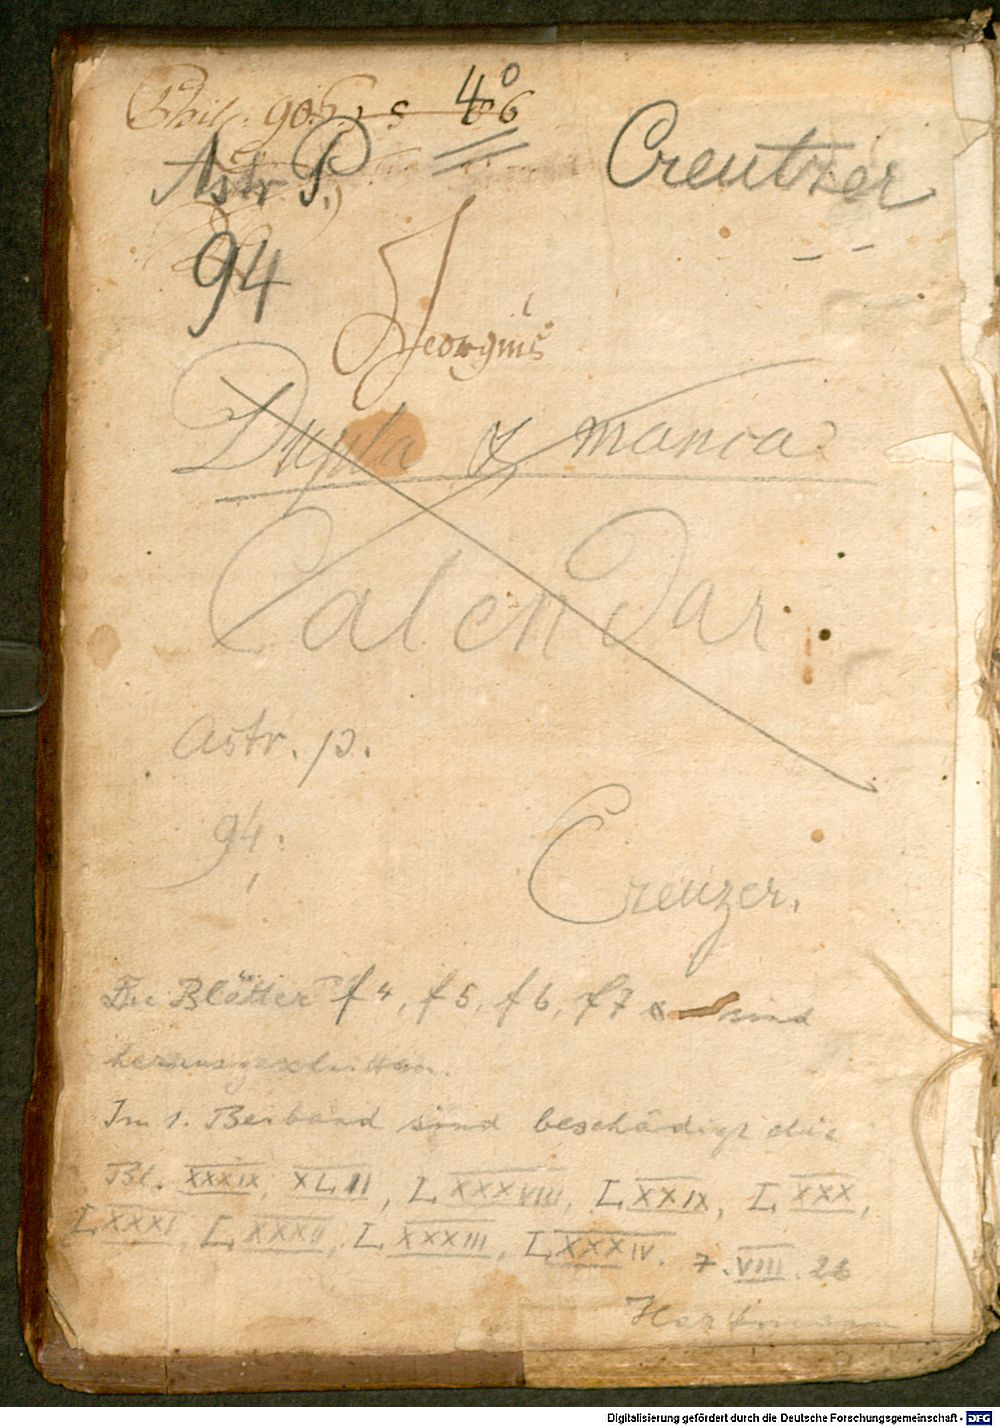 Phil: 905. s 4° 6
Astr. P. Creutzer
94
Georgius
Dupla & manca
Calendar
Astr. p.
94.
Creuzer.
Die Blätter f 4, f 5, f 6, f 7 sind
herausgeschnitten.
Im 1. Beiband sind beschädigt die
Bl. XXXIX, XLII, LXXXVIII, LXXIX, LXXX,
LXXXI, LXXXII, LXXXIII, LXXXIV. 7. VIII. 26
Hartmann
Digitalisierung gefördert durch die Deutsche Forschungsgemeinschaft - DFG